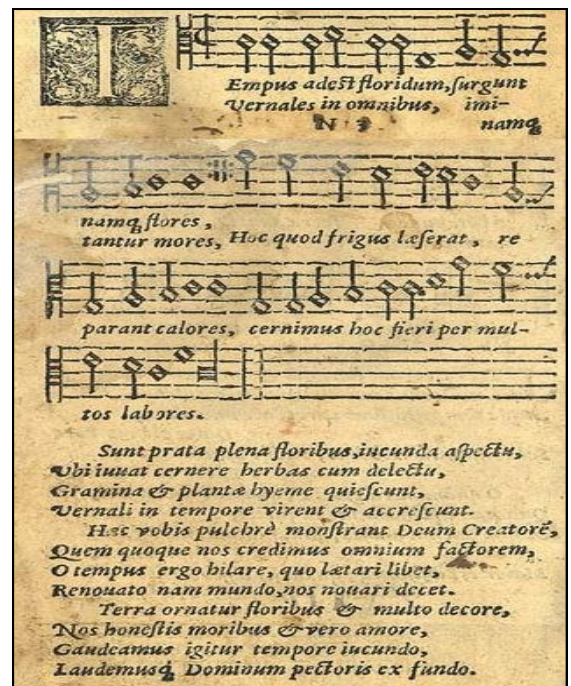 TEmpus adest floridum, surgunt
Vernales in omnibus, imi-
N 3 namq;
namq; flores,
tantur mores, Hoc quod frigus læserat, re
parant calores, cernimus hoc fieri per mul-
tos labores.
Sunt prata plena floribus, iucunda aspectu,
Vbi iuuat cernere herbas cum delectu,
Gramina & plantæ hyeme quiescunt,
Vernali in tempore virent & accrescunt.
Hæc vobis pulchrè monstrant Deum Creatorẽ,
Quem quoque nos credimus omnium factorem,
O tempus ergo hilare, quo lætari libet,
Renouato nam mundo, nos nouari decet.
Terra ornatur floribus & multo decore,
Nos honestis moribus & vero amore,
Gaudeamus igitur tempore iucundo,
Laudemusq; Dominum pectoris ex fundo.